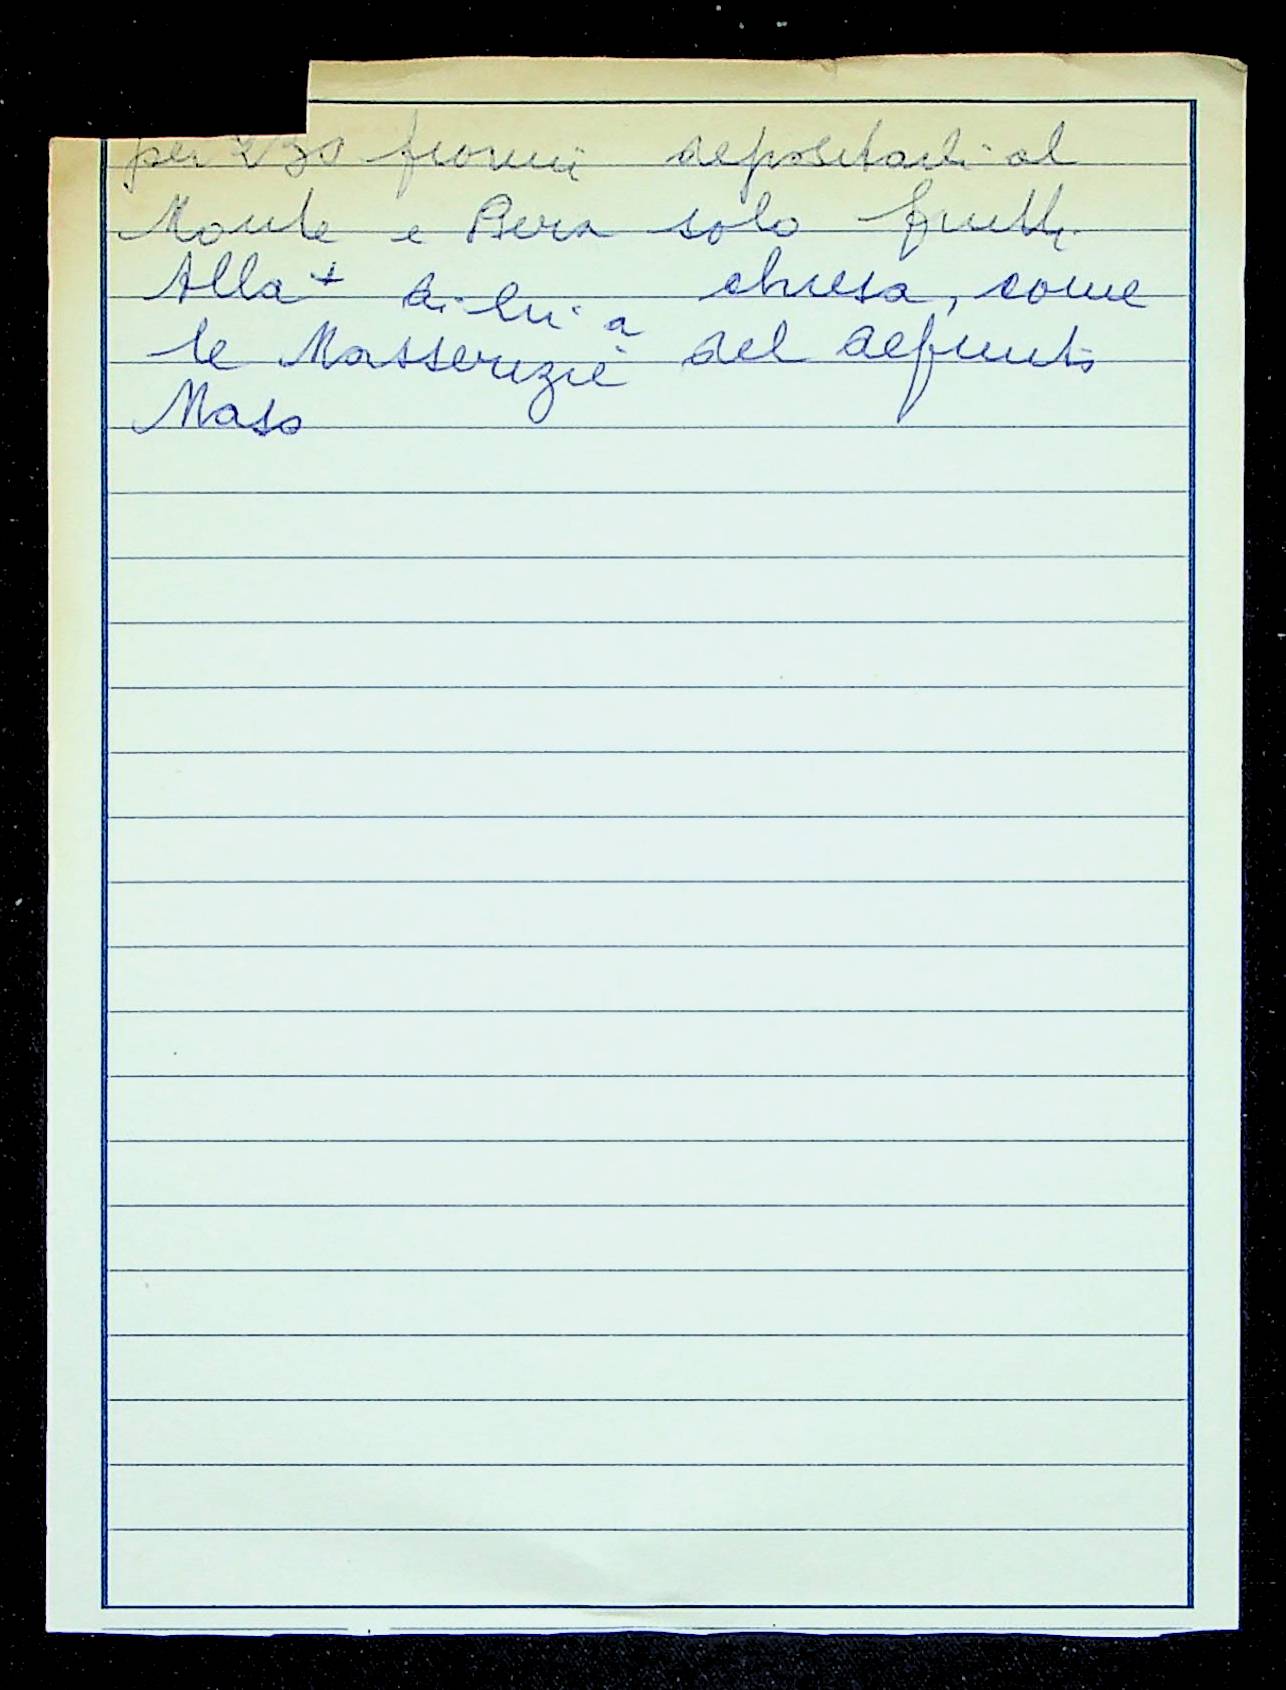 per 230 fiorini depositati al
Monte e Piera solo frutti
Alla + di lui a chiesa, come
le Masserizie del defunto
Maso